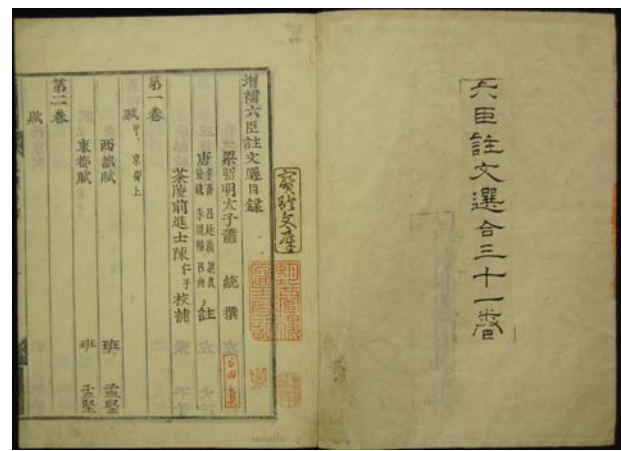 六臣註文選合三十一卷
增補六臣註文選目錄
梁昭明太子蕭 統 撰
唐 李善 呂延濟 劉良 張銑 李周翰 呂向 註
茶陵前進士陳仁子校補
第一卷
賦甲 京都上
西都賦 班孟堅
東都賦 班孟堅
第二卷
賦